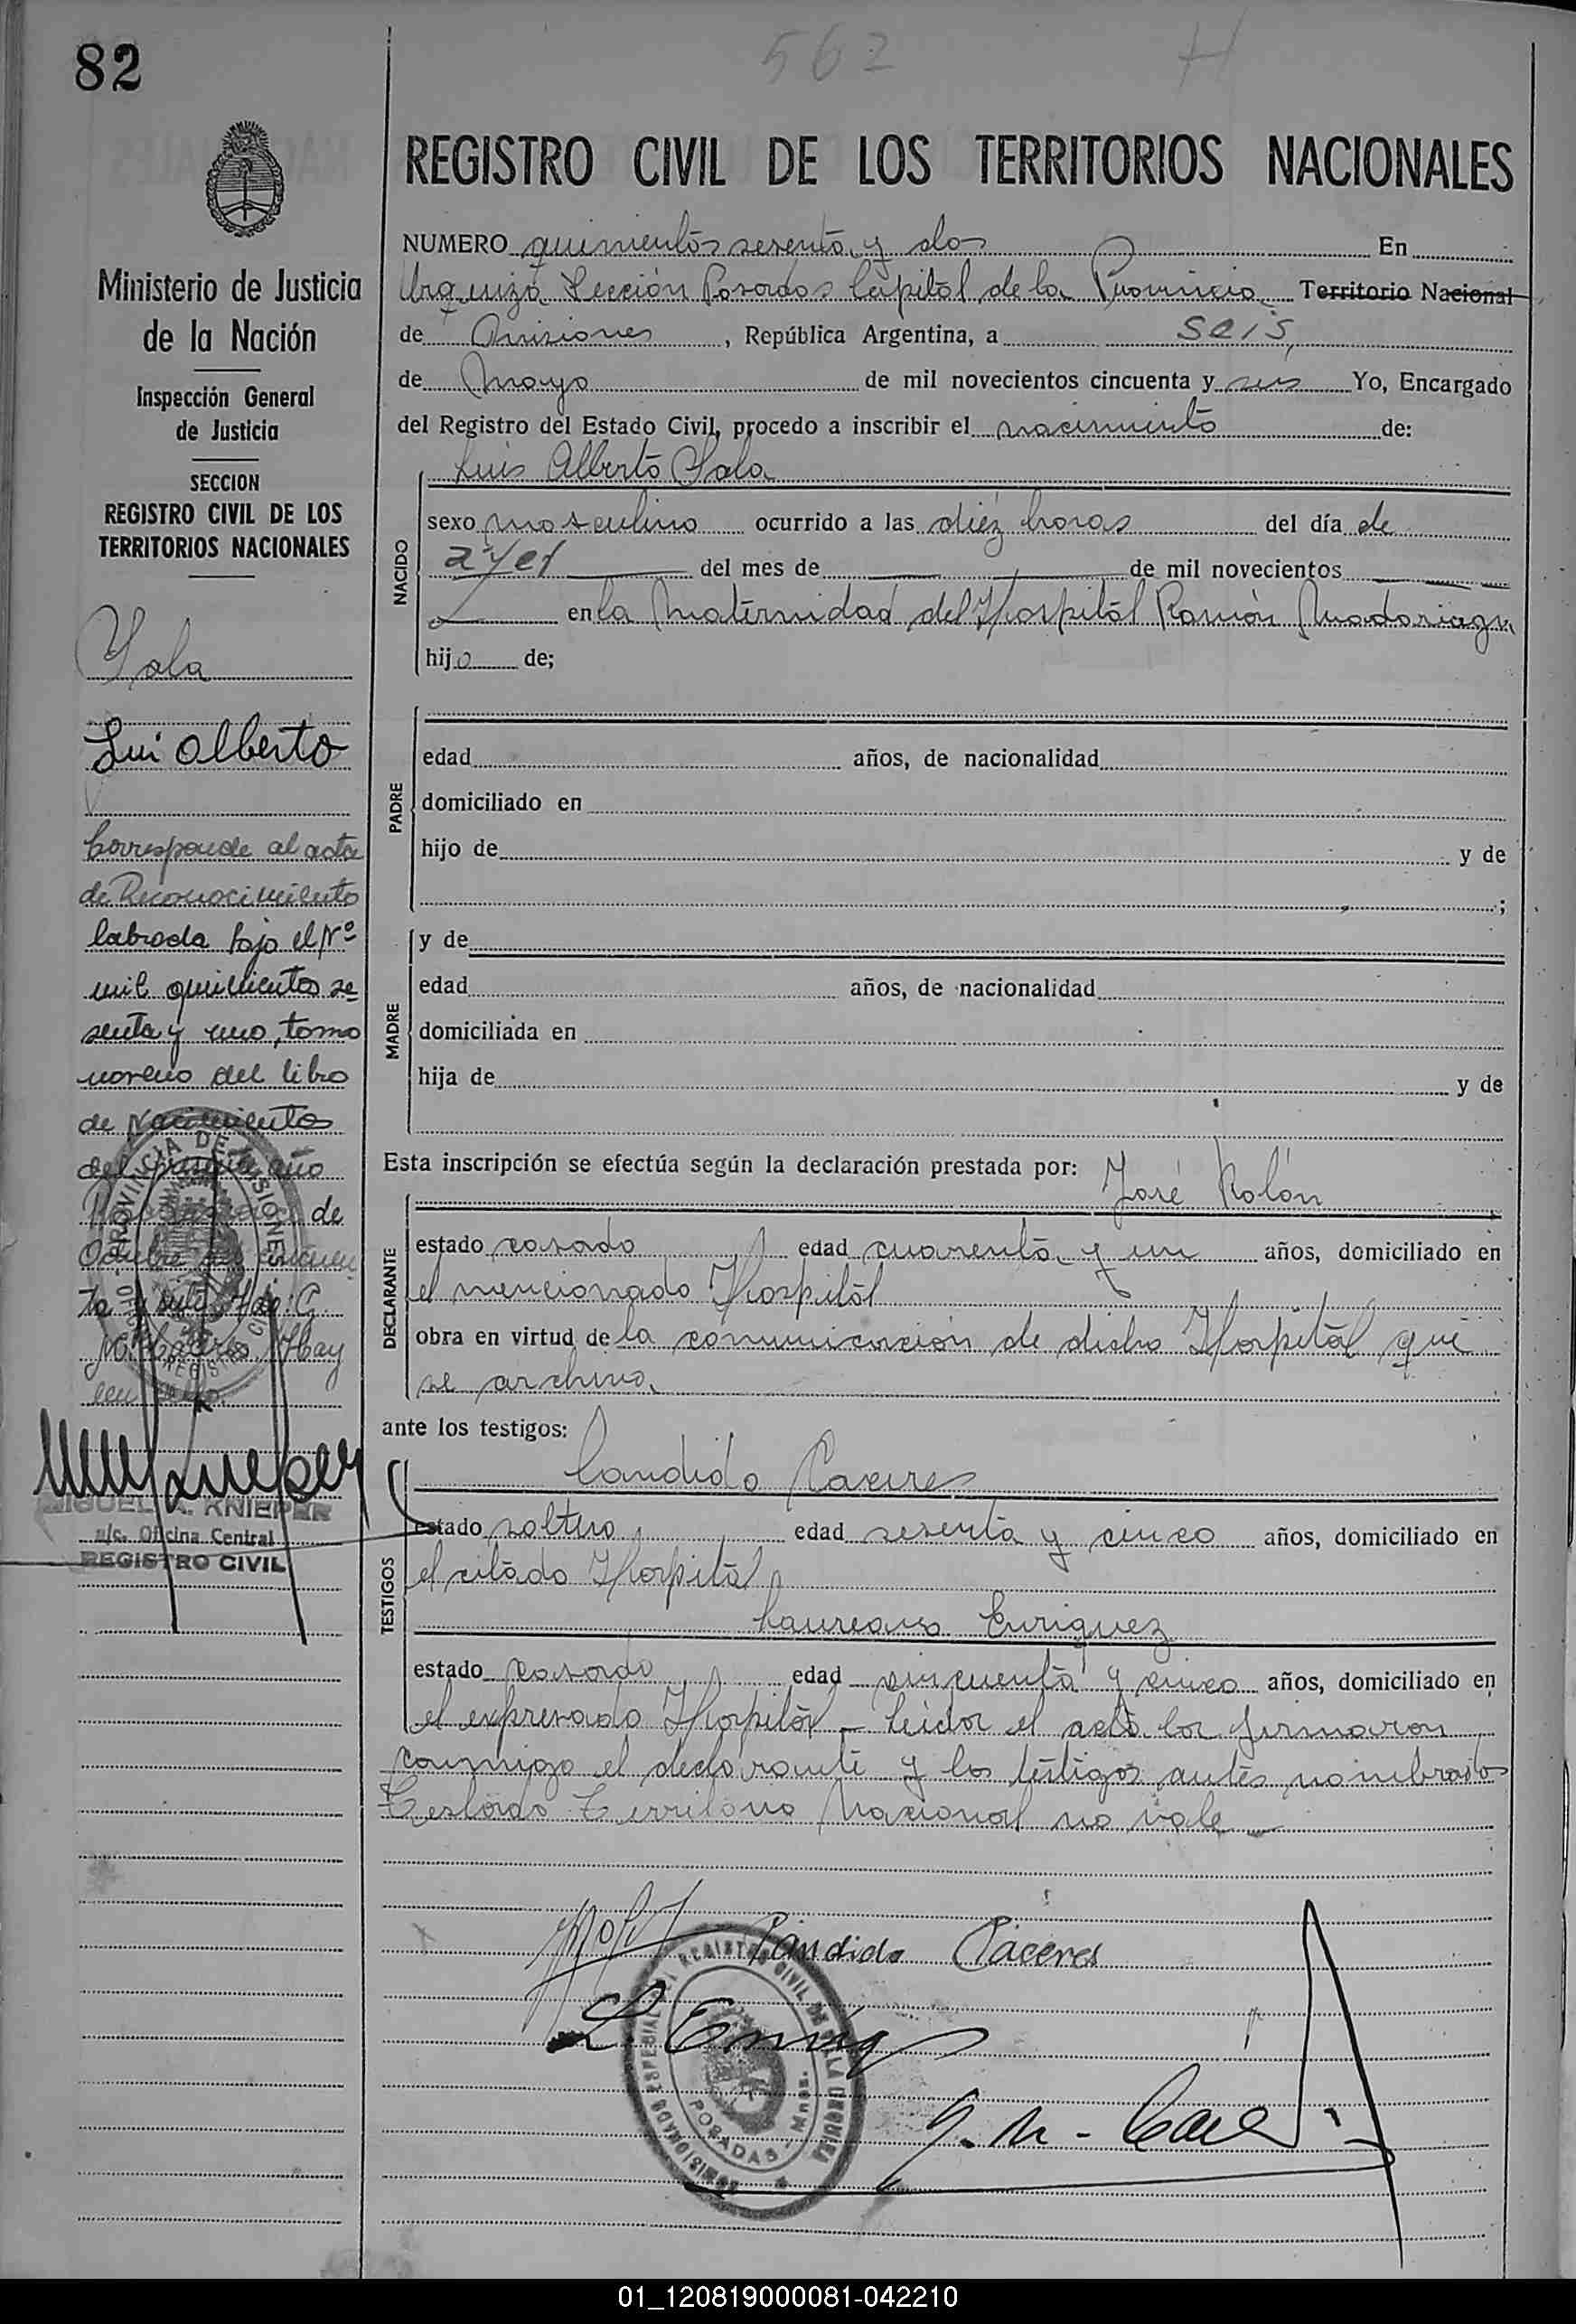 82
562 H
REGISTRO CIVIL DE LOS TERRITORIOS NACIONALES
Ministerio de Justicia
de la Nación
Inspección General
de Justicia
SECCION
REGISTRO CIVIL DE LOS
TERRITORIOS NACIONALES
Sala
Lui Alberto
Corresponde al acta
de Reconocimiento
labrada bajo el Nº
mil quinientos se
senta y uno, tomo
noveno del libro
de Nacimientos
del presente año
de
Octubre
ta y
Hay
MIGUEL A. KNIEPER
a/c. Oficina Central
REGISTRO CIVIL
NUMERO quinientos sesenta y dos En
Urquiza Sección Posadas Capital de la Provincia Territorio Nacional
de Misiones, República Argentina, a seis,
de Mayo de mil novecientos cincuenta y seis Yo, Encargado
del Registro del Estado Civil, procedo a inscribir el nacimiento de:
Luis Alberto Sala
NACIDO
sexo masculino ocurrido a las diez horas del día de
ayer del mes de de mil novecientos
en la Maternidad del Hospital Ramón Madariaga
hijo de;
PADRE
edad años, de nacionalidad
domiciliado en
hijo de y de
;
MADRE
y de
edad años, de nacionalidad
domiciliada en
hija de y de
Esta inscripción se efectúa según la declaración prestada por: José Rolón
DECLARANTE
estado casado edad cuarenta y un años, domiciliado en
el mencionado Hospital
obra en virtud de la comunicación de dicho Hospital que
se archiva
ante los testigos:
Candido Caceres
TESTIGOS
estado soltero edad sesenta y cinco años, domiciliado en
el citado Hospital
Laureano Enriquez
estado casado edad cincuenta y cinco años, domiciliado en
el expresado Hospital - Leida el acta la firmaron
conmigo el declarante y los testigos antes nombrados
Testado Territorio Nacional no vale
Cándido Cáceres
L. Enriq
REGISTRO CIVIL DE VILLA URQUIZA
POSADAS - Mnes.
01_120819000081-042210